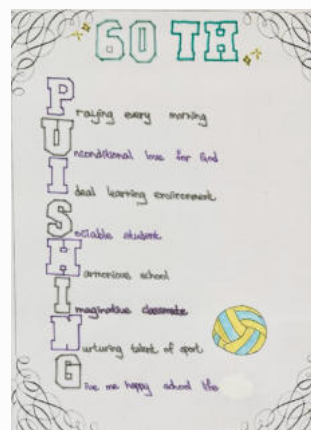 60 TH
Praying every morning
Unconditional love for God
Ideal learning environment
Sociable student
Harmonious school
Imaginative classmate
Nurturing talent of sport
Give me happy school life